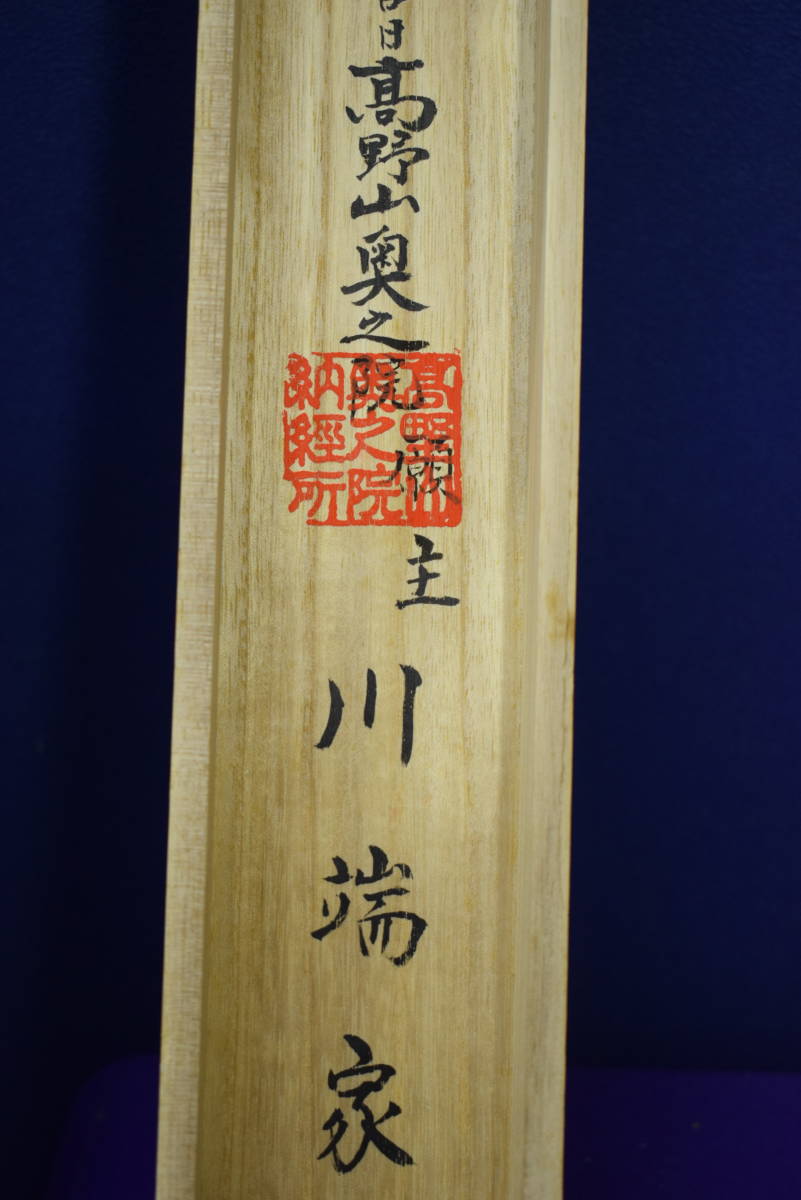 日髙野山奥之院
願主
川端家
高野山
奥之院
納經所